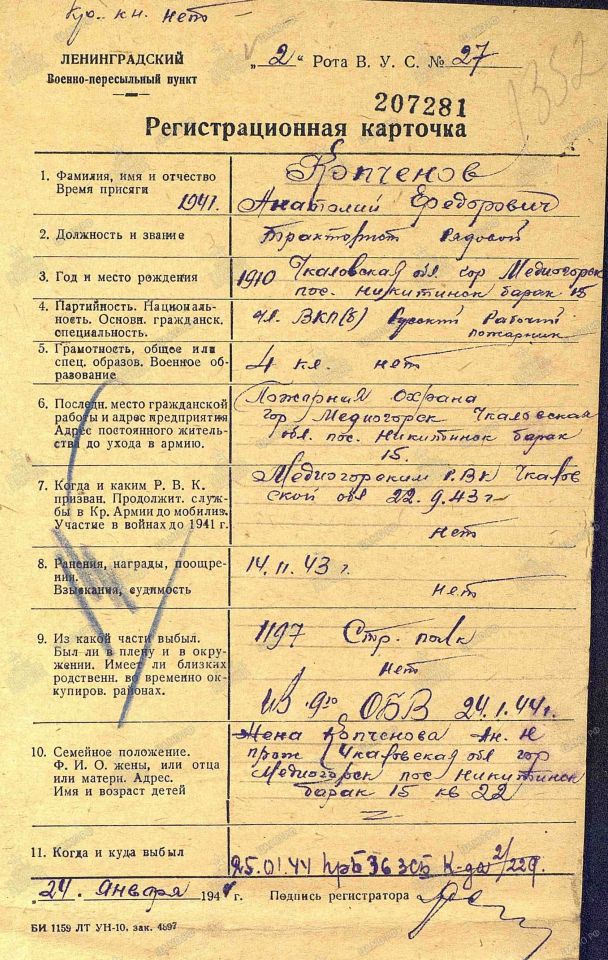 Кр. кн. нет
ЛЕНИНГРАДСКИЙ
Военно-пересыльный пункт
„2“ Рота В. У. С. № 27
1352
207281
Регистрационная карточка
1. Фамилия, имя и отчество
Время присяги
1941.
Копченов
Анатолий Федорович
2. Должность и звание
Тракторист Рядовой
3. Год и место рождения
1910 Чкаловская обл. гор Медногорск
пос. Никитинск барак 15
4. Партийность. Националь-
ность. Основн. гражданск.
специальность.
чл. ВКП(б) Русский Рабочий
пожарник
5. Грамотность, общее или
спец. образов. Военное об-
разование
4 кл. нет
6. Последн. место гражданской
работы и адрес предприятия
Адрес постоянного житель-
ства до ухода в армию.
Пожарная охрана
гор Медногорск Чкаловская
обл. пос. Никитинск барак
15.
7. Когда и каким Р. В. К.
призван. Продолжит. служ-
бы в Кр. Армии до мобилиз.
Участие в войнах до 1941 г.
Медногорским РВК Чкалов
ской обл 22.9.43 г
нет
8. Ранения, награды, поощре-
нии.
Взыскания, судимость
14.11.43 г.
нет
9. Из какой части выбыл.
Был ли в плену и в окру-
жении. Имеет ли близких
родственн. во временно ок-
купиров. районах.
1197 Стр. полк
нет
из ОБВ 24.1.44г.
10. Семейное положение.
Ф. И. О. жены, или отца
или матери. Адрес.
Имя и возраст детей
Жена Копченова Ан. Н
прож Чкаловская обл гор
Медногорск пос Никитинск
барак 15 кв 22
11. Когда и куда выбыл
25.01.44 36 ЗСБ К-да 2/229.
„24“ января 1944 г. Подпись регистратора
БИ 1159 ЛТ УН-10, зак. 4897